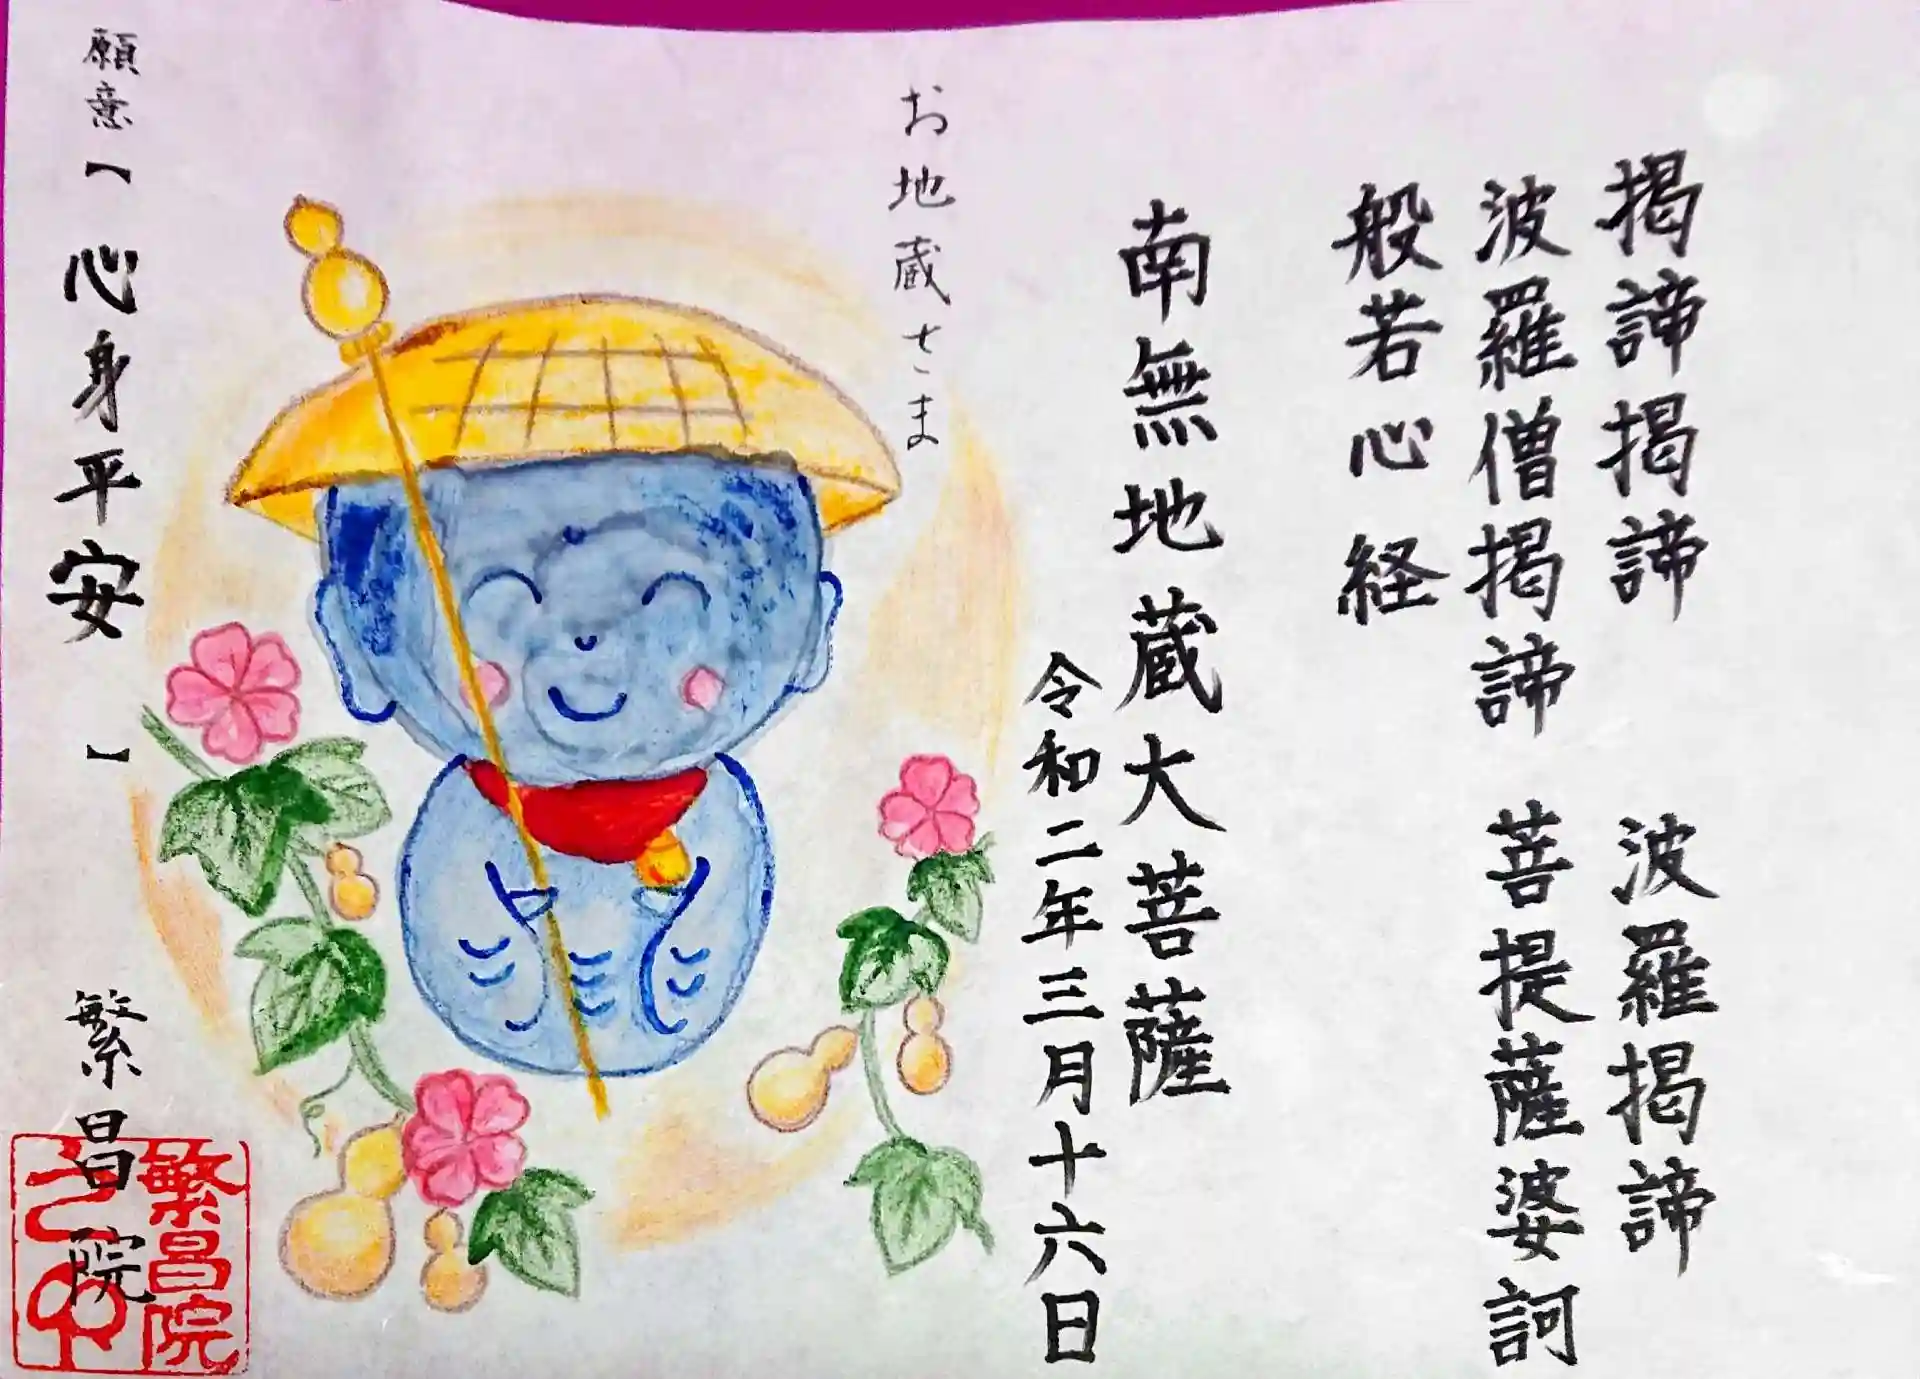 揭諦揭諦 波羅揭諦
波羅僧揭諦 菩提薩婆訶
般若心経
南無地蔵大菩薩
令和二年三月十六日
お地蔵さま
願意【心身平安】 繁昌院
繁昌院